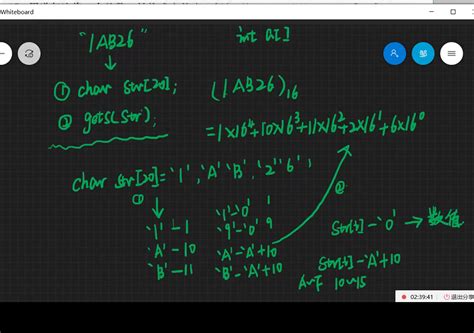 Whiteboard
"1AB26"
int a[]
① char str[20];
(1AB26)₁₆
② gets(str);
=1×16⁴+10×16³+11×16²+2×16¹+6×16⁰
char str[20]='1','A','B','2''6';
①
②
'1'-1
'1'-'0' 1
'9'-'0' 9
str[i]-'0' → 数值
'A'-10
'A'-'A'+10
'B'-11
'B'-'A'+10
str[i]-'A'+10
A~F 10~15
02:39:41
退出分享